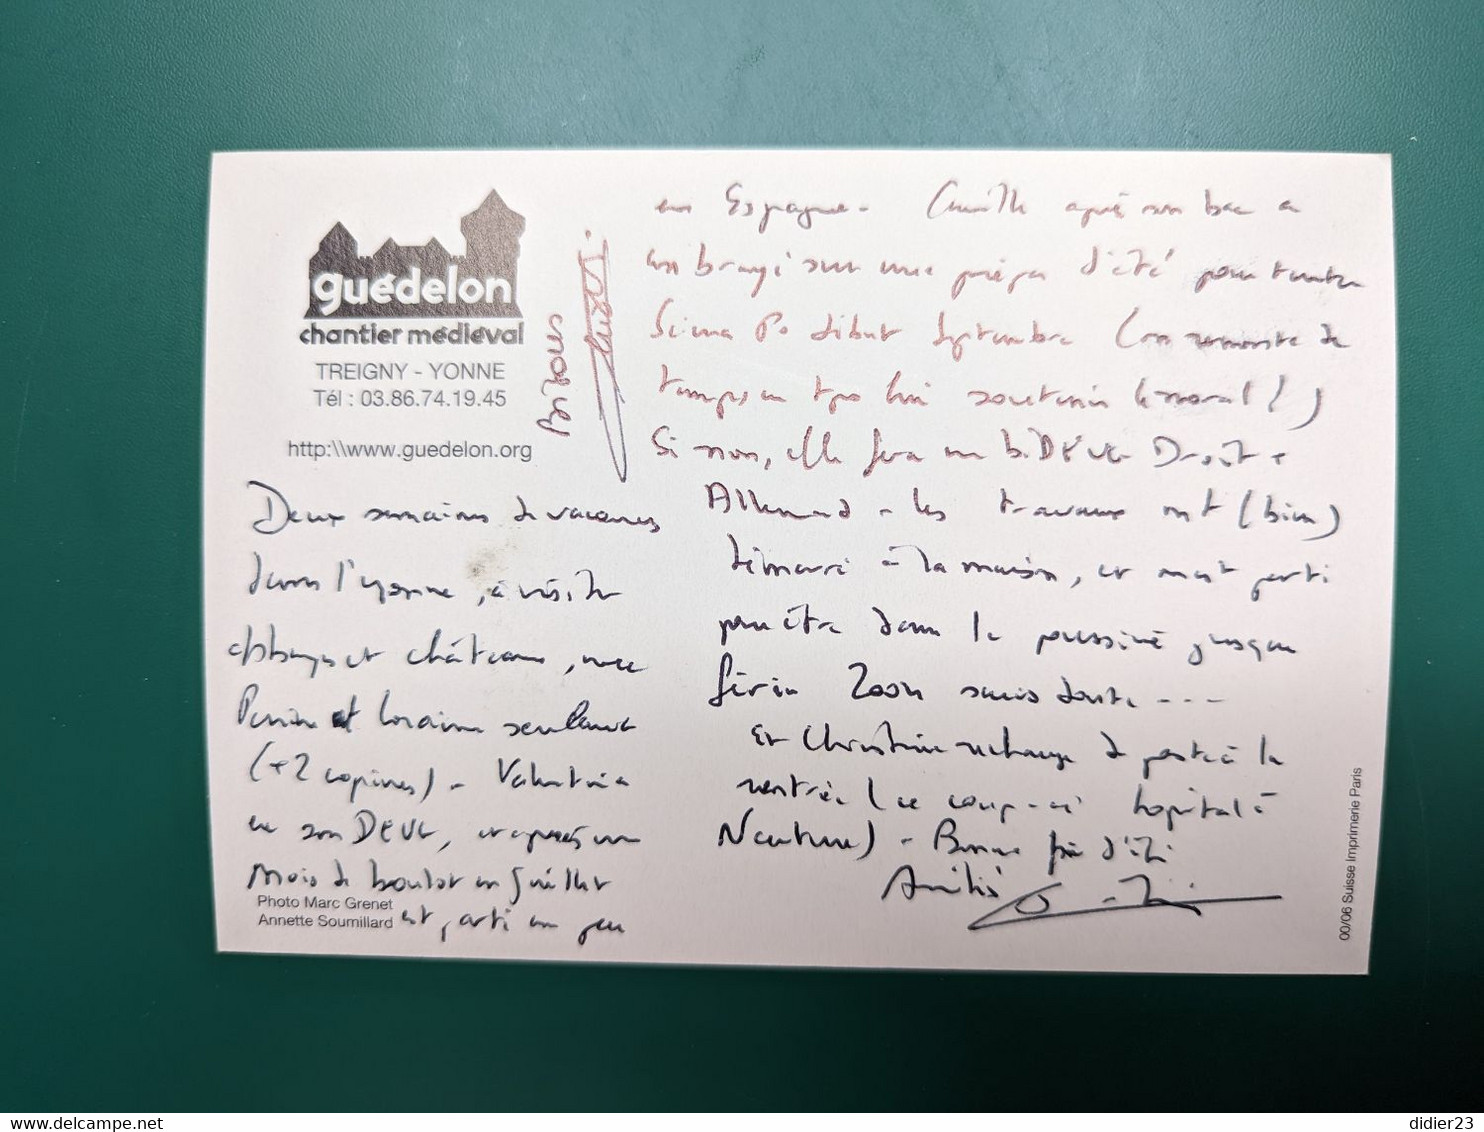 guédelon
chantier médiéval
TREIGNY - YONNE
Tél : 03.86.74.19.45
http:\\www.guedelon.org
Deux semaines de vacances
dans l'Yonne, à visiter
abbayes et châteaux, avec
Perrine et Loraine seulement
(+2 copines) - Valentin a
eu son DEUG, et après un
mois de boulot en Juillet
est parti un peu
Photo Marc Grenet
Annette Soumillard
en Espagne - Camille après son bac a
embrayé sur une prépa d'été pour tenter
Sciences Po début Septembre (on remonte de
temps en tps lui soutenir le moral !)
Si non, elle fera un bi DEUG Droit +
Allemand - Les travaux ont (bien)
démarré à la maison, et on est parti
pour être dans la poussière jusque
février 2004 sans doute ---
Et Christine rechange de poste à la
rentrée (ce coup-ci hopital à
Nanterre) - Bonne fin d'été
Amitiés
Bisous
00/06 Suisse Imprimerie Paris
delcampe.net
didier23